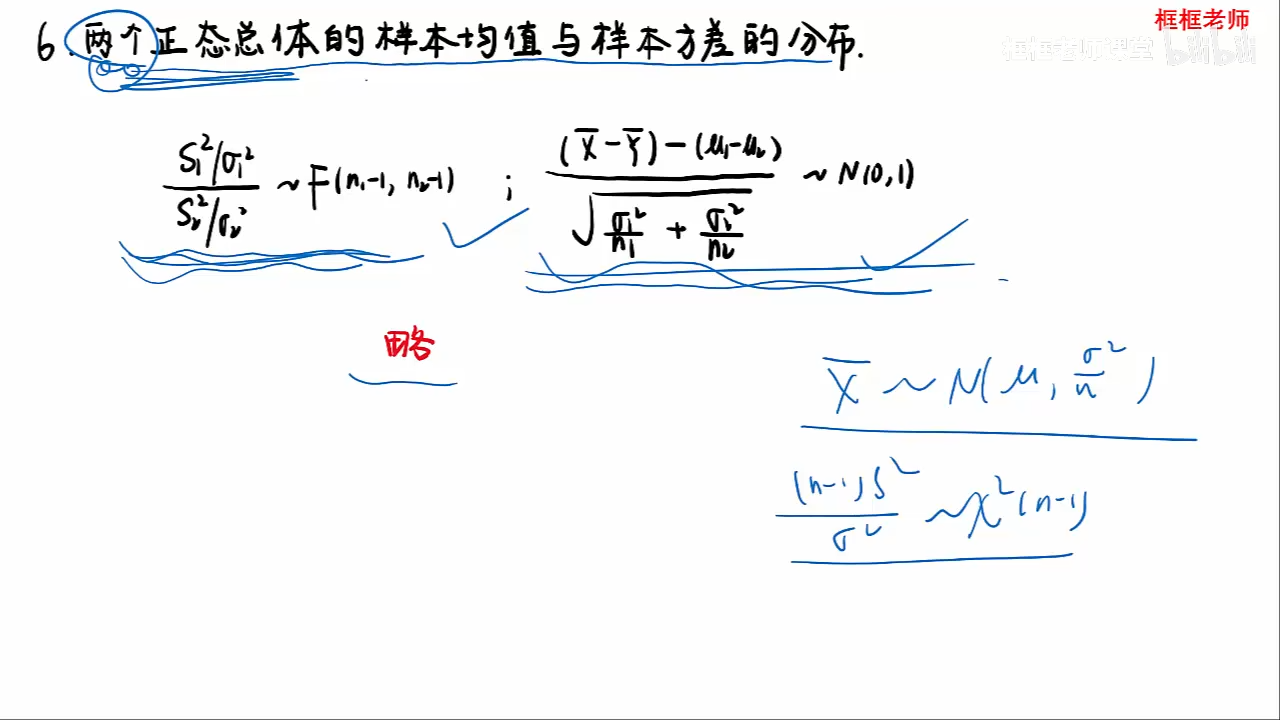 框框老师
框框老师课堂 bilibili
6.两个正态总体的样本均值与样本方差的分布.
S₁²/σ₁² / S₂²/σ₂² ~ F(n₁-1, n₂-1) ; (X̄-Ȳ)-(μ₁-μ₂) / √(σ₁²/n₁ + σ₂²/n₂) ~ N(0,1)
略
X̄ ~ N(μ, σ²/n)
(n-1)S²/σ² ~ χ²(n-1)